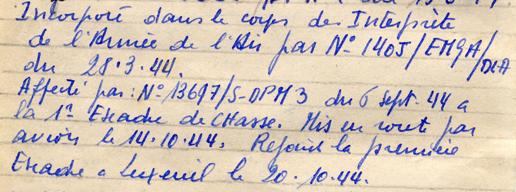 Incorporé dans le corps des Interprète
de l'Armée de l'Air par N° 1405/EMGA/
DCA
du 28.3.44.
Affecté par: N° 13697/S-DPM 3 du 6 sept. 44 a
la 1re Escadre de Chasse. Mis en route par
avion le 14.10.44. Rejoint la première
Escadre a Luxeuil le 20.10.44.